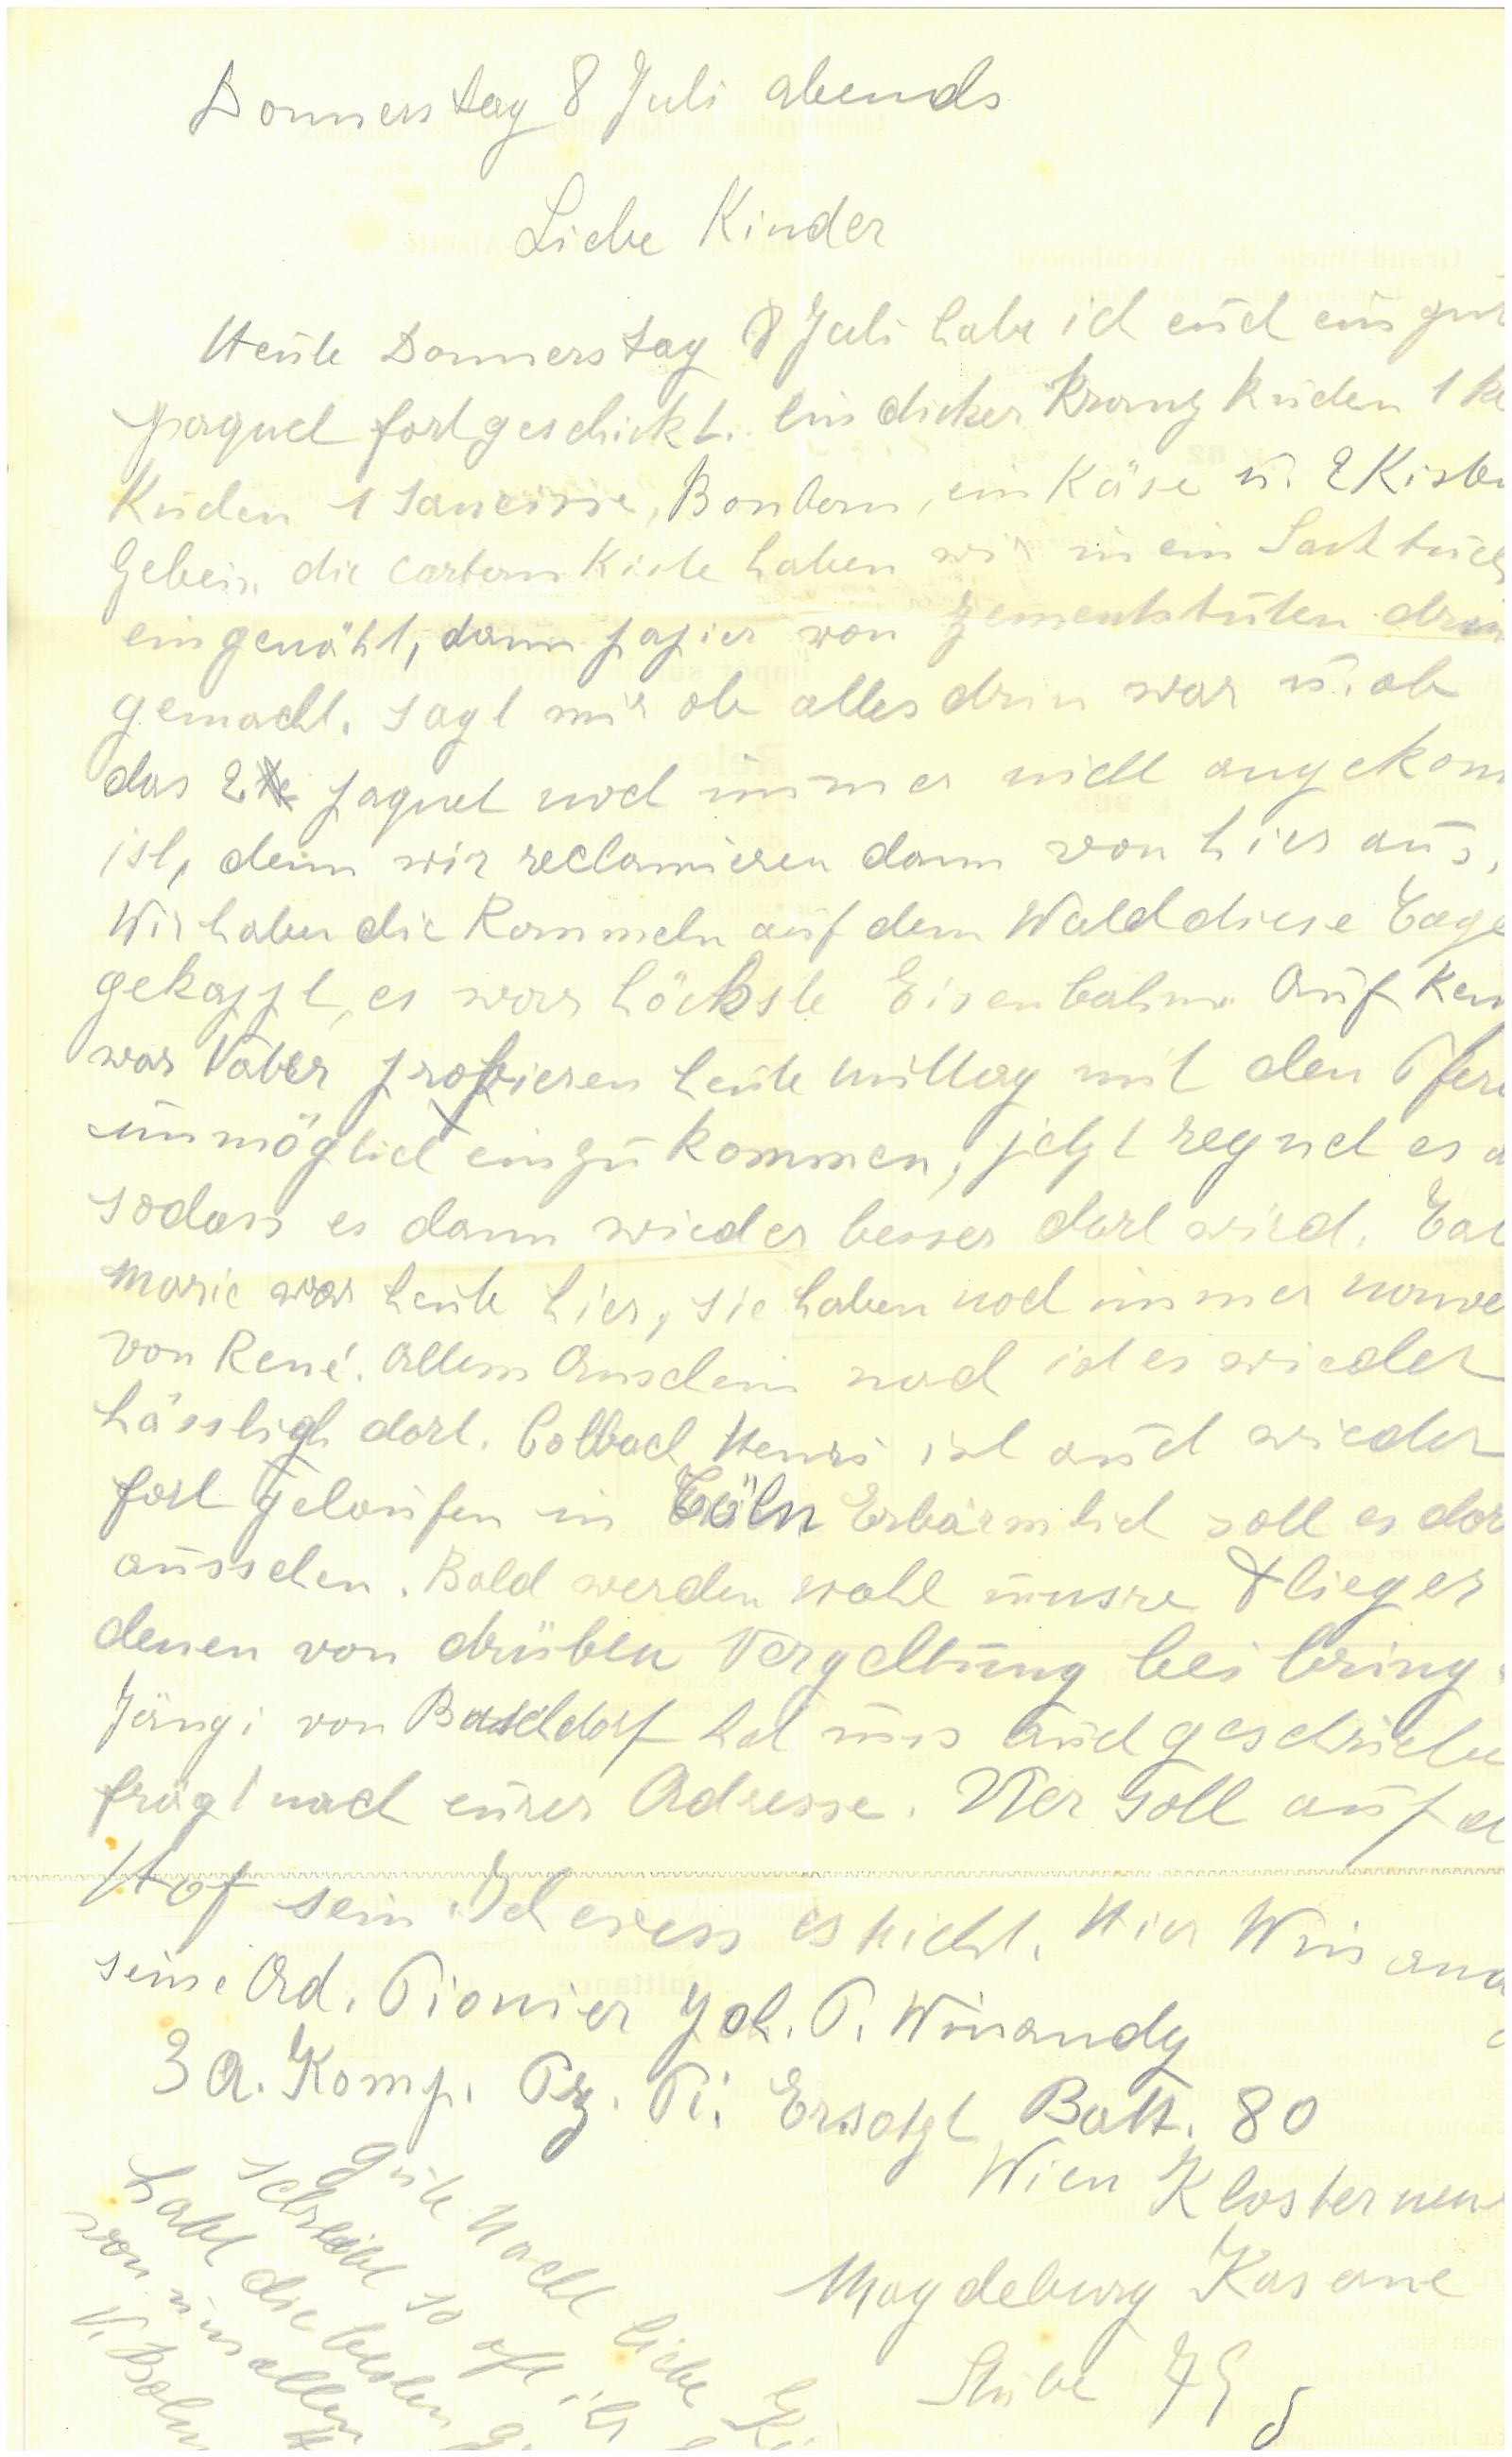 Donnerstag 8 Juli abends
Liebe Kinder
Heute Donnerstag 8 Juli habe ich euch ein gut
paquet fortgeschickt. Ein dicker Kranz Kuchen 1 k
Kuchen 1 saucisse, Bonbons, ein Käse u. 2 Kisten
Gebein. die Cartonn Kiste haben wir in ein Sacktuch
eingenäht, dann papier von zementstuten drin
gemacht. sagt mir ob alles drin war u. ob
das 2te paquet noch immer nicht angekom
ist, denn wir reclamieren dann von hier aus,
Wir haben die Rommeln auf dem Wald diese Tage
gekappt, es war höchste Eisenbahn. Auf Ken
war Vater probieren heute mittag mit den Pfer
unmöglich einzukommen, jetzt regnet es
sodass es dann wieder besser dort wird. Tat
Marie war heute hier, sie haben noch immer
von René. Allem Anschein nach ist es wieder
hässligh dort. Colbach Henri ist auch wieder
fort gelaufen in Cöln Erbärmlich soll es dor
aussehen. Bald werden wohl unsre Flieger
denen von drüben Vergeltung bei bring
Jängi von Baschdorf hat uns auch geschriebe
frägt nach eurer Adresse. Vier soll auf d
Hof sein. Ich weiss es nicht. Hier Winand
seine Ad. Pionier Joh. P. Winandy
3 A. Komp. Pz. Pi. Ersatzt Batt. 80
Wien Klosterneu
Magdeburg Kaserne
Stube 75
gute Nacht liebe Ki
schreibt so oft ihr
habt die besten G
von uns allen
V. Bohn